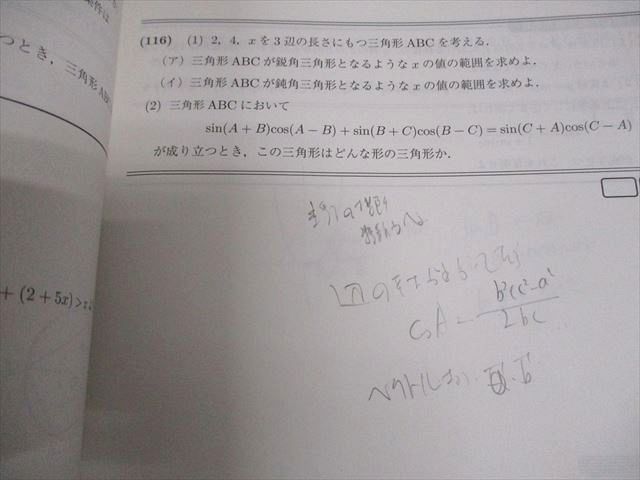 つとき，三角形AB
+ (2 + 5x) >
(116) (1) 2，4，xを3辺の長さにもつ三角形ABCを考える．
(ア) 三角形ABCが鋭角三角形となるようなxの値の範囲を求めよ．
(イ) 三角形ABCが鈍角三角形となるようなxの値の範囲を求めよ．
(2) 三角形ABCにおいて
sin(A + B)cos(A − B) + sin(B + C)cos(B − C) = sin(C + A)cos(C − A)
が成り立つとき，この三角形はどんな形の三角形か．
cosA = b²+c²-a² / 2bc
ベクトル